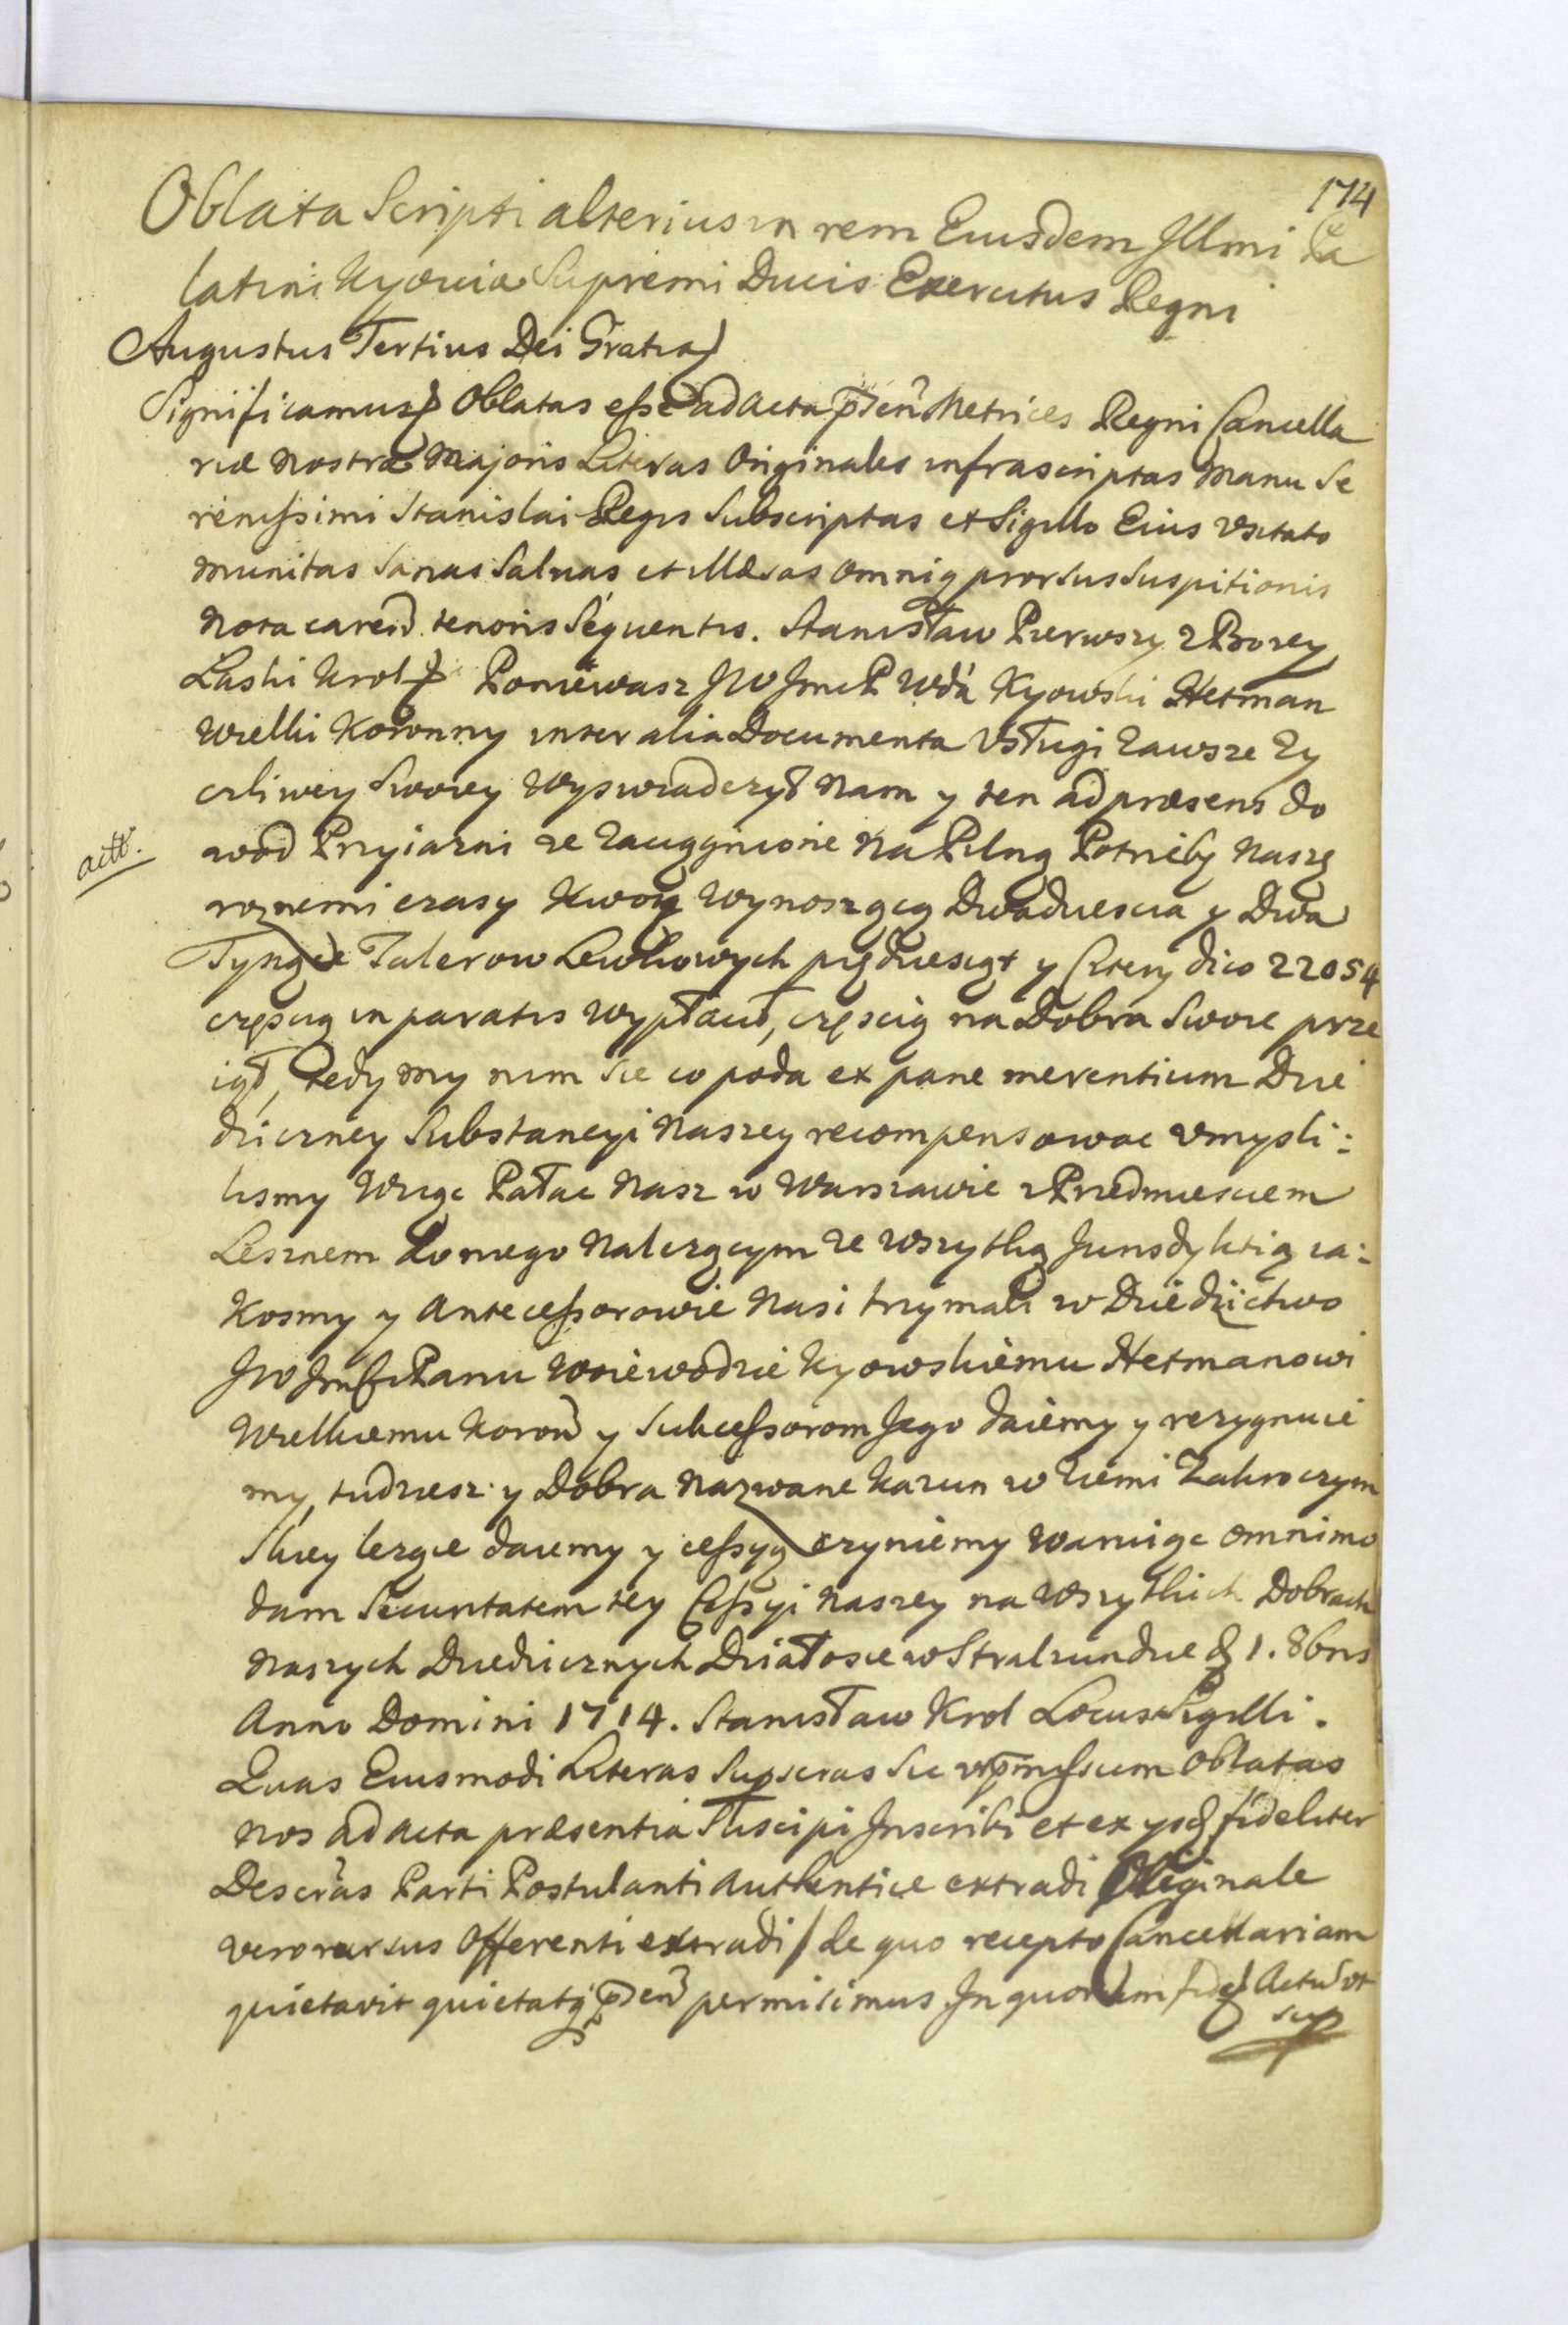 174
Oblata Scripti alterius in rem Eiusdem Illmi Pa
latini Kyoviæ Supremi Ducis Exercitus Regni
Augustus Tertius Dei Gratia
Significamus Oblatas esse ad Acta p̄sen Metrices Regni Cancella
riæ Nostræ Majoris Literas Originales infrascriptas Manu Se
renissimi Stanislai Regis Subscriptas et Sigillo Eius Usitato
munitas Sanas Salvas et Illæsas Omniq prorsus Suspitionis
Nota caren tenoris Sequentis. Stanisław Pierwszy z Bozey
Łaski Krol Poniewasz JW JmcP Wda Kyowski Hetman
Wielki Koronny inter alia Documenta Usługi zawsze zy
czliwey Swoiey wyswiadczył Nam y ten ad præsens do
wod Przyiazni ze zaciągnione Na Pilną Potrzebę Naszą
actt.
roznemi czasy Kwotę wynoszącą Dwadziescia y Dwa
Tysiące Talerow Lewkowych pędziesiąt y Cztery dico 22054
częscią in paratis wypłacił, częscią na Dobra Swoie prze
iął, tedy my nim sie co poda ex pane merentium Dzie
dziczney Substancyi Naszey recompensowac umysli:
lismy Więc Pałac Nasz w Warszawie z Przedmiesciem
Lesznem do niego Nalezącym ze wszytką Jurisdyktią ia:
Kosmy y Antecessorowie Nasi trzymali w Dziedzictwo
JW Panu Woiewodzie Kyowskiemu Hetmanowi
Wielkiemu Koron y Sukcessorom Jego daiemy y rezygnuie
my, tudziesz y Dobra Nazwane Kazun w Ziemi Zakroczym
Skiey lezące daiemy y cessyą czyniemy Waruiąc Omnimo
dam Securitatem tey Cessyi Naszey na Wszytkich Dobrach
Naszych Dziedzicznych Działosie w Stralzundzie d 1. 8bris
Anno Domini 1714. Stanisław Krol Locus Sigilli.
Quas Eiusmodi Literas Supscras Sic ut p̄missum Oblatas
Nos ad Acta præsentia Suscipi Inscribi et ex ysd fideliter
Descras Parti Postulanti Authentice extradi Originale
vero rursus Offerenti extradi / de quo recepto Cancellariam
quietavit quietatq p̄sen permisimus In quorum fid Actu ut
sup